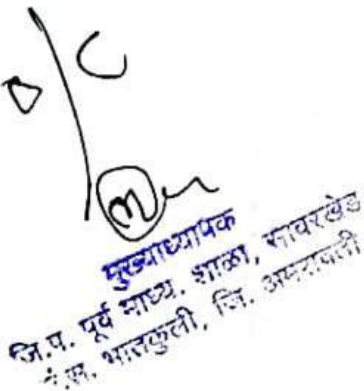 O/C
मुख्याध्यापक
जि.प. पूर्व माध्य. शाळा, सावरखेड
पं.स. भातकुली, जि. अमरावती